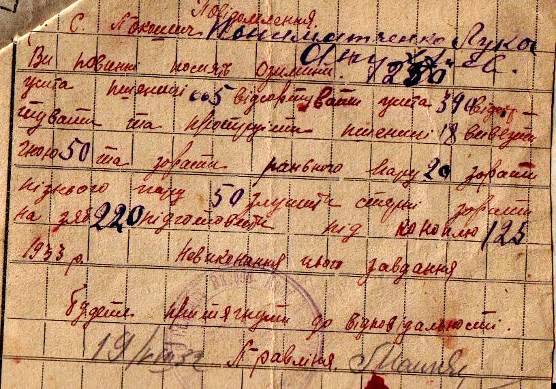 Повідомлення.
С. Покошич Понаматченко Лука
Ви повинні посіять Озимини 250
жита пшениці 5 відсортувати жита 340 відсор
тувати та протруїти пшениці 18 вивезти
гною 50 та зорати раннього пару 20 зорати
пізнього пару 50 злущити стерні зорати
на зяб 220 підготовити під коноплю 125
1933 р. Невиконання цього завдання
будете притягнути до відповідальності.
19/ 1932 Правління